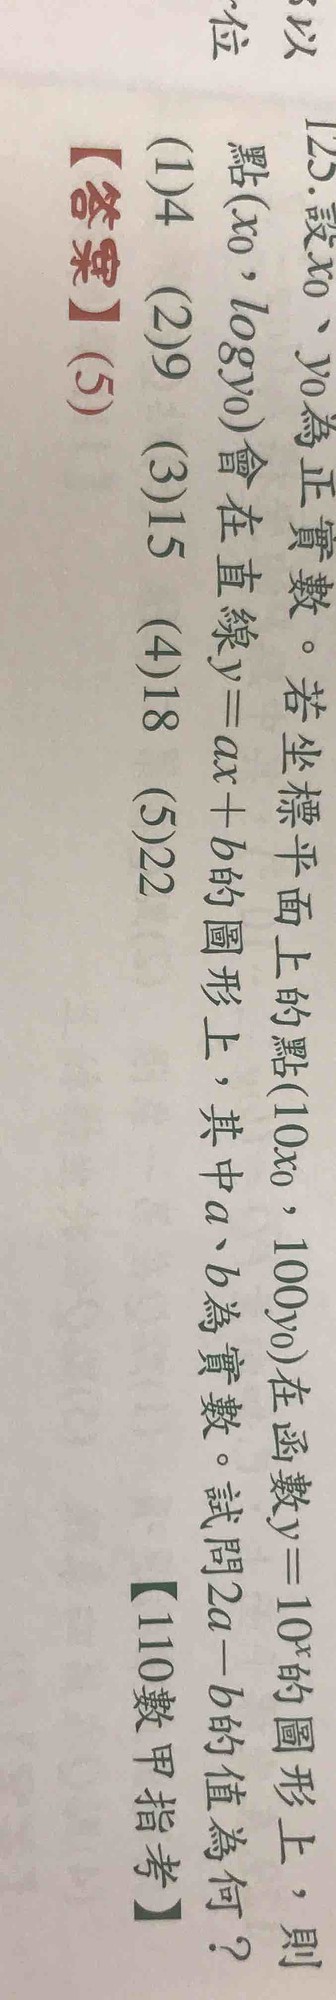 以
位
125.設x₀、y₀為正實數。若坐標平面上的點(10x₀,100y₀)在函數y=10ˣ的圖形上,則
點(x₀,logy₀)會在直線y=ax+b的圖形上,其中a、b為實數。試問2a-b的值為何?
(1)4 (2)9 (3)15 (4)18 (5)22 【110數甲指考】
【答案】(5)